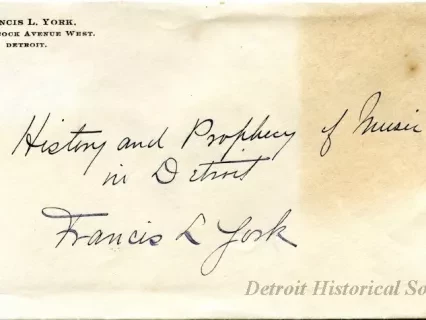 NCIS L. YORK.
OCK AVENUE WEST.
DETROIT.
History and Prophecy of Music
in Detroit
Francis L York
Detroit Historical So